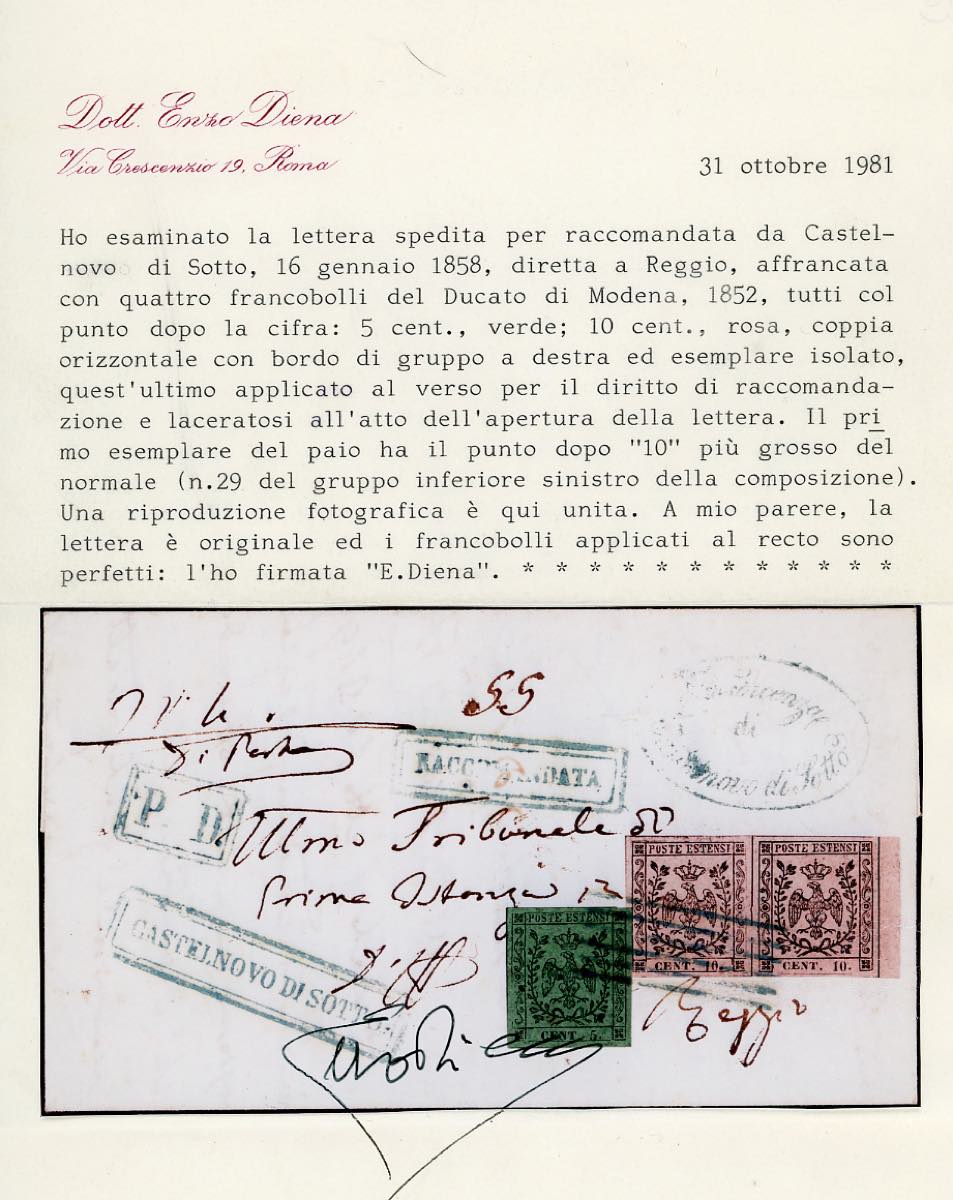 Dott. Enzo Diena
Via Crescenzio 19, Roma
31 ottobre 1981
Ho esaminato la lettera spedita per raccomandata da Castel-
novo di Sotto, 16 gennaio 1858, diretta a Reggio, affrancata
con quattro francobolli del Ducato di Modena, 1852, tutti col
punto dopo la cifra: 5 cent., verde; 10 cent., rosa, coppia
orizzontale con bordo di gruppo a destra ed esemplare isolato,
quest'ultimo applicato al verso per il diritto di raccomanda-
zione e laceratosi all'atto dell'apertura della lettera. Il pri
mo esemplare del paio ha il punto dopo "10" più grosso del
normale (n.29 del gruppo inferiore sinistro della composizione).
Una riproduzione fotografica è qui unita. A mio parere, la
lettera è originale ed i francobolli applicati al recto sono
perfetti: l'ho firmata "E.Diena". * * * * * * * * * * * *
55
di
novo di Sotto
RACCOMANDATA
P. D.
Tribunale di
Prima Istanza in
POSTE ESTENSI
POSTE ESTENSI
CENT. 10.
CENT. 10.
POSTE ESTENSI
CENT. 5.
CASTELNOVO DI SOTTO
Reggio